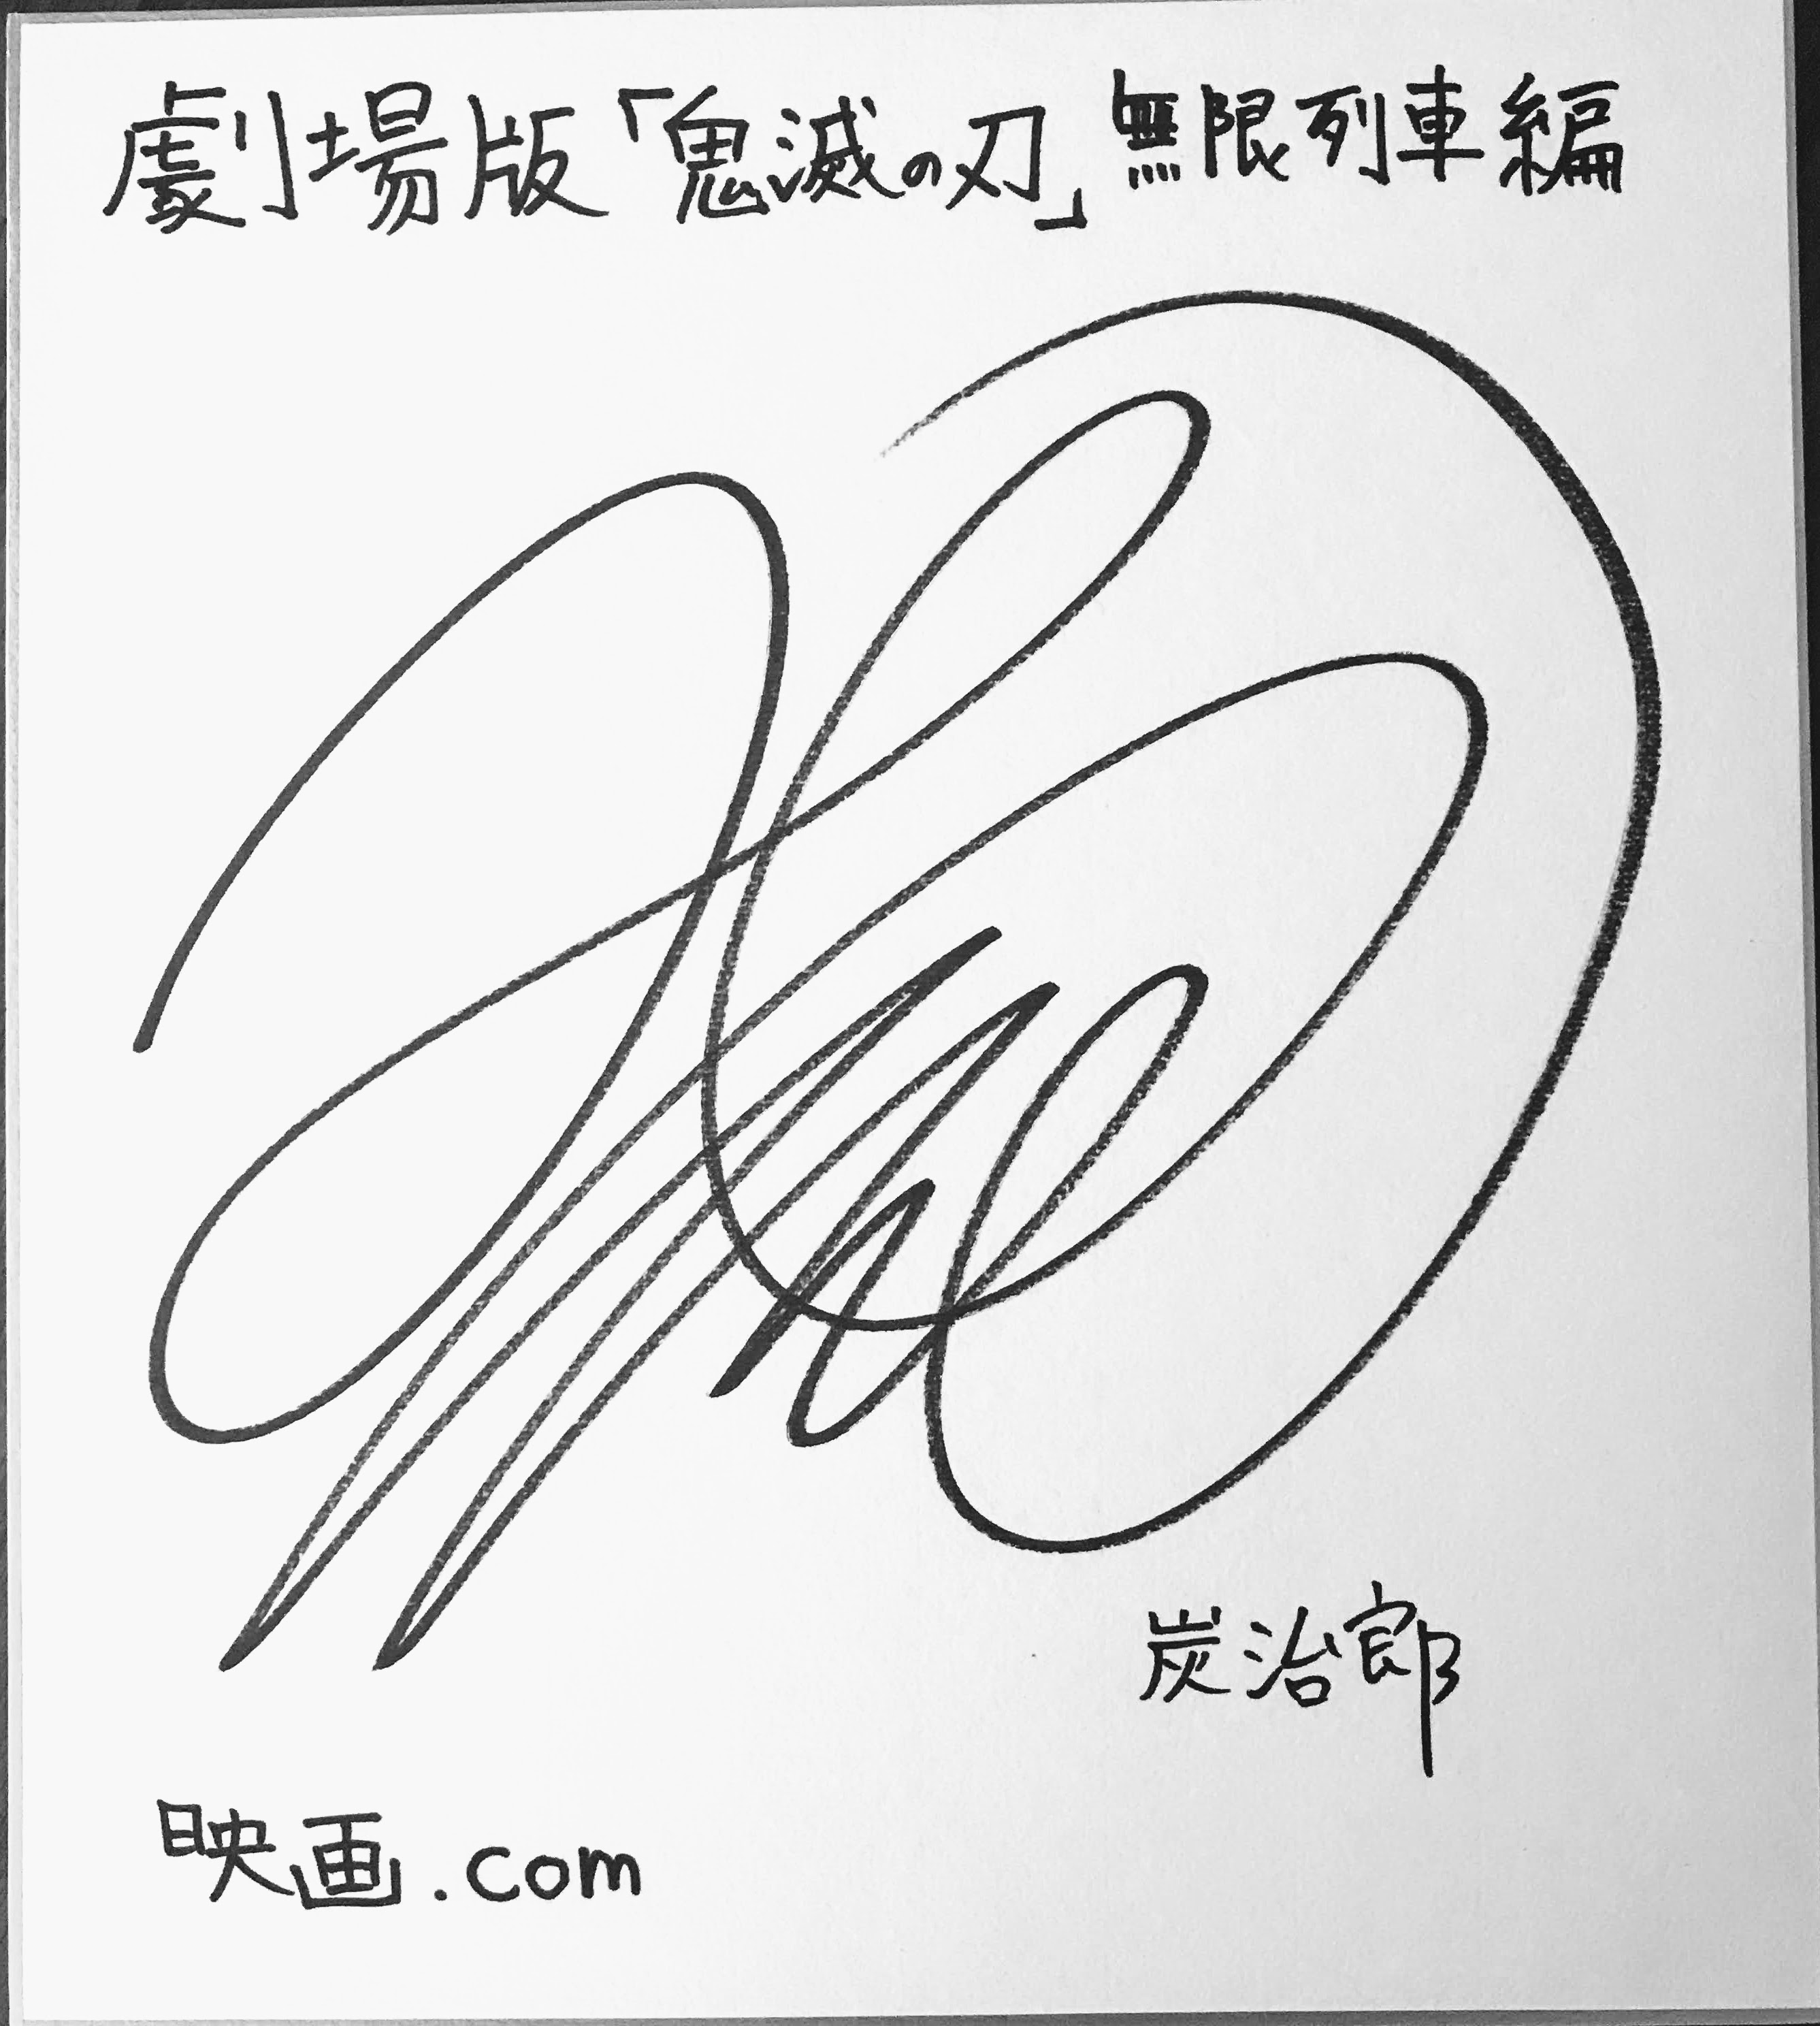 劇場版「鬼滅の刃」無限列車編
炭治郎
映画.com